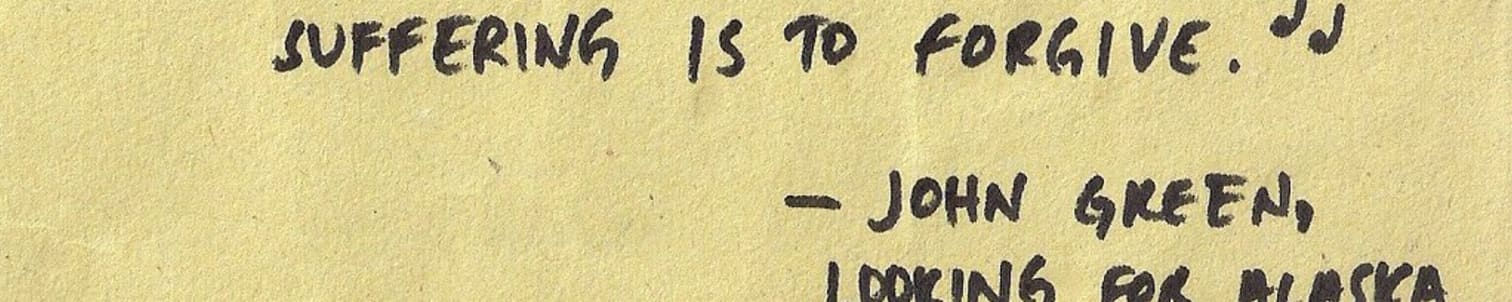 SUFFERING IS TO FORGIVE."
— JOHN GREEN,
LOOKING FOR ALASKA